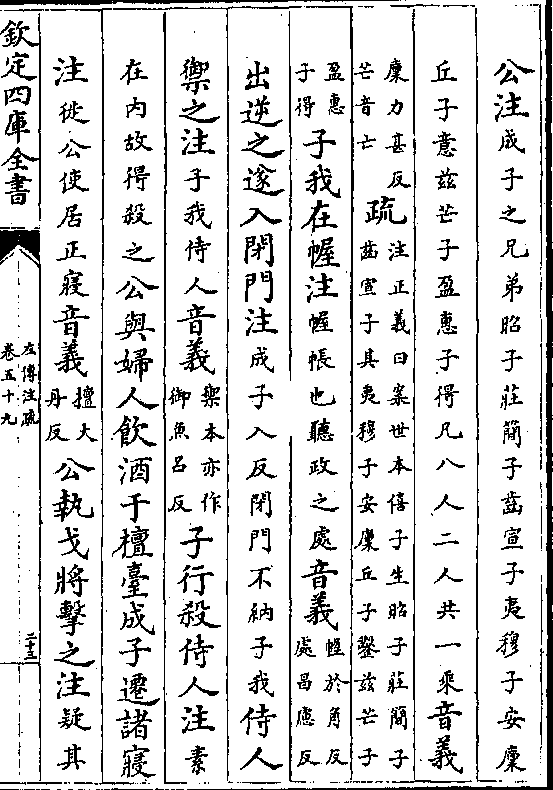 公注成子之兄弟昭子莊簡子齒宣子夷穆子安廩
丘子意兹芒子盈惠子得凡八人二人共一乘音義
廩力甚反
芒音亡
疏
注正義曰案世本僖子生昭子莊簡子
齒宣子其夷穆子安廩丘子鑿兹芒子
盈惠
子得
子我在幄注幄帳也聽政之處音義
幄於角反
處昌慮反
出逆之遂入閉門注成子入反閉門不納子我侍人
禦之注子我侍人音義
禦本亦作
御魚呂反
子行殺侍人注素
在内故得殺之公與婦人飲酒于檀臺成子遷諸寢
注徙公使居正寢音義
檀大
丹反
公執戈將擊之注疑其
欽定四庫全書
左傳注疏
卷五十九
二十三